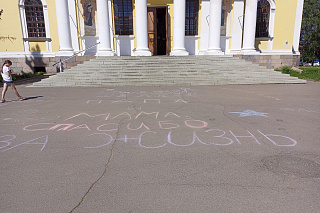 ПАПА
МАМА
СПАСИБО
ЗА ЖИЗНЬ